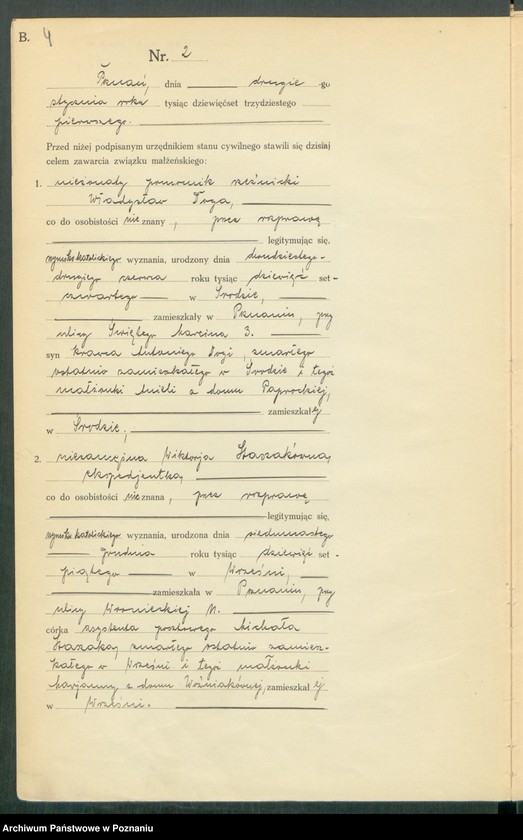 B. 4
Nr. 2
Poznań, dnia drugie -go
stycznia roku tysiąc dziewięćset trzydziestego
pierwszego.
Przed niżej podpisanym urzędnikiem stanu cywilnego stawili się dzisiaj
celem zawarcia związku małżeńskiego:
1. nieżonaty pomocnik rzeźnicki
Władysław Troja,
co do osobistości nie znany, przez rozprawę
legitymując się,
rzymsko katolickiego wyznania, urodzony dnia dwudziestego-
drugiego czerwca roku tysiąc dziewięć set-
czwartego w Środzie,
zamieszkały w Poznaniu, przy
ulicy Świętego Marcina 3.
syn krawca Antoniego Troji, zmarłego
ostatnio zamieszkałego w Środzie i tegoż
małżonki Anieli z domu Paprockiej,
zamieszkałej
w Środzie,
2. niezamężna Wiktorja Staszakówna,
ekspedjentka,
co do osobistości nie znana, przez rozprawę
legitymując się,
rzymsko katolickiego wyznania, urodzona dnia siedmnastego
grudnia roku tysiąc dziewięć set-
piątego w Wrześni,
zamieszkała w Poznaniu, przy
ulicy Wronieckiej
córka asystenta pocztowego Michała
Staszaka, zmarłego ostatnio zamiesz-
kałego w Wrześni i tegoż małżonki
Marjanny z domu Woźniakównej, zamieszkałej
w Wrześni.
Archiwum Państwowe w Poznaniu